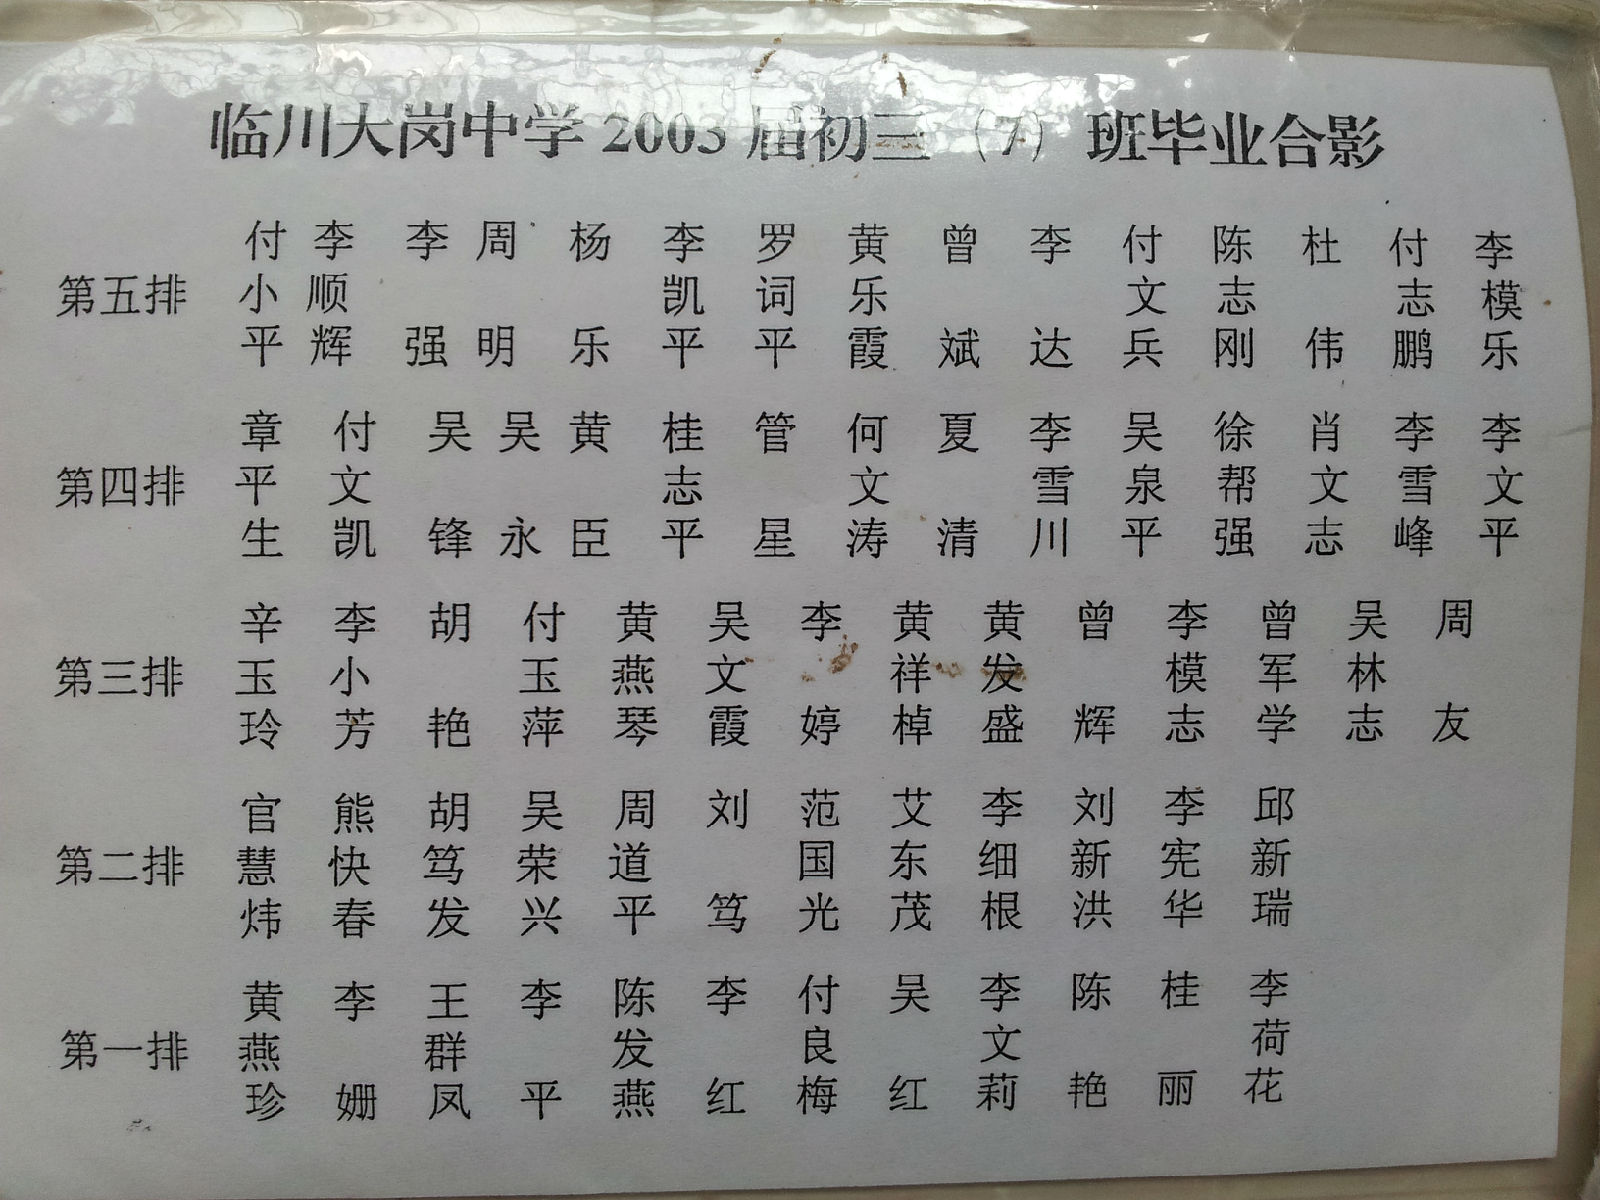 临川大岗中学 2003 届初三（7）班毕业合影
付 李 李 周 杨 李 罗 黄 曾 李 付 陈 杜 付 李
第五排 小 顺 凯 词 乐 文 志 志 模
平 辉 强 明 乐 平 平 霞 斌 达 兵 刚 伟 鹏 乐
章 付 吴 吴 黄 桂 管 何 夏 李 吴 徐 肖 李 李
第四排 平 文 志 文 雪 泉 帮 文 雪 文
生 凯 锋 永 臣 平 星 涛 清 川 平 强 志 峰 平
辛 李 胡 付 黄 吴 李 黄 黄 曾 李 曾 吴 周
第三排 玉 小 玉 燕 文 祥 发 模 军 林
玲 芳 艳 萍 琴 霞 婷 棹 盛 辉 志 学 志 友
官 熊 胡 吴 周 刘 范 艾 李 刘 李 邱
第二排 慧 快 笃 荣 道 国 东 细 新 宪 新
炜 春 发 兴 平 笃 光 茂 根 洪 华 瑞
黄 李 王 李 陈 李 付 吴 李 陈 桂 李
第一排 燕 群 发 良 文 荷
珍 姗 凤 平 燕 红 梅 红 莉 艳 丽 花